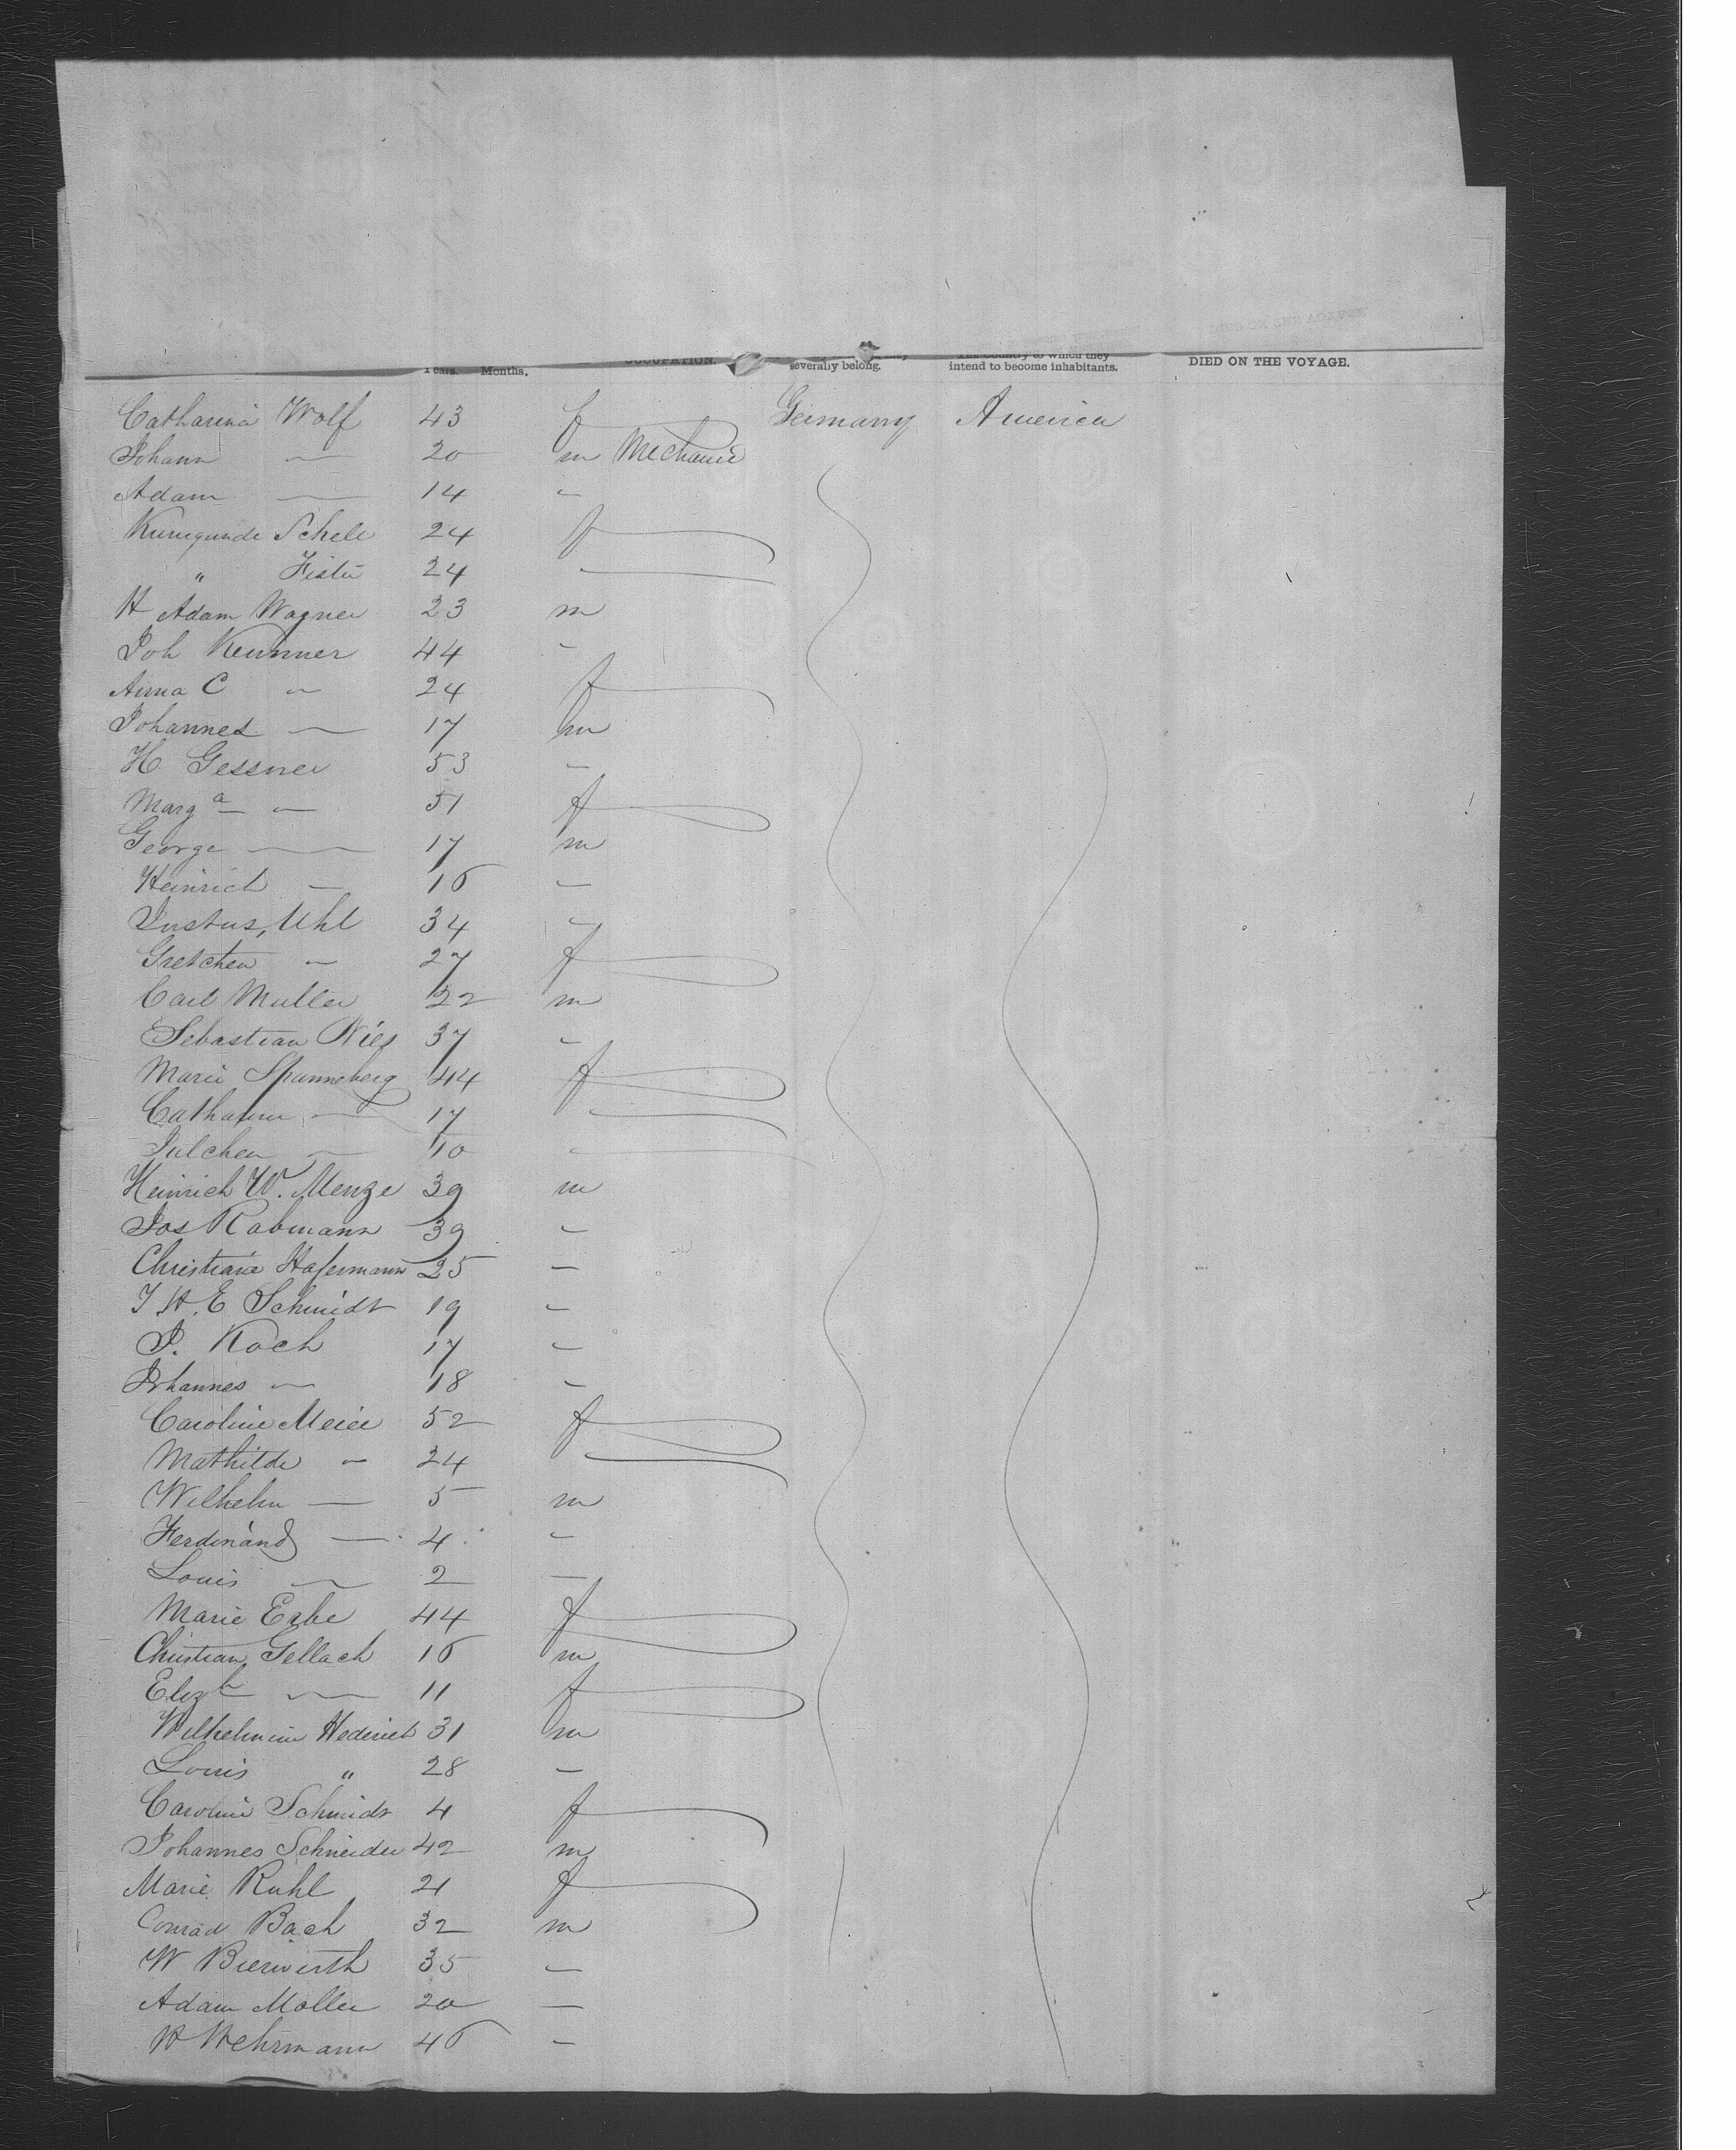 Years. Months. OCCUPATION. severally belong. The Country to which they intend to become inhabitants. DIED ON THE VOYAGE.
Catharina Wolf 43 f Germany America
Johann — 20 m Mechanic
Adam — 14 -
Kunigunde Schele 24 f
" 24 -
H Adam Wagner 23 m
Joh 44 -
Anna C - 24 f
Johannes — 17 m
H. Gessner 53 -
Marga - 51 f
George — 17 m
Heinrich — 16 -
Justus, Uhl 34 -
Gretchen - 27 f
Carl Muller 22 m
Sebastian Ries 37 -
Marie Spanneberg 44 f
Catharine — 17 -
Julchen — 10 -
Heinrich W. Menze 39 m
Jos Rabmann 39 -
Christiane Hafermann 25 -
J. H. E Schmidt 19 -
P. Koch 17 -
Johannes - 18 -
Caroline Meier 52 f
Mathilde - 24 -
Wilhelm — 5 m
Ferdinand — 4 -
Louis — 2 -
Marie Erbe 44 f
Christian Gellach 16 m
Elizh — 11 f
Wilhelmine Hederich 31 m
Louis " 28 -
Caroline Schmidt 4 f
Johannes Schneider 42 m
Marie Ruhl 21 f
Conrad Bach 32 m
W Bierwirth 35 -
Adam Moller 20 -
H Wehrmann 46 -